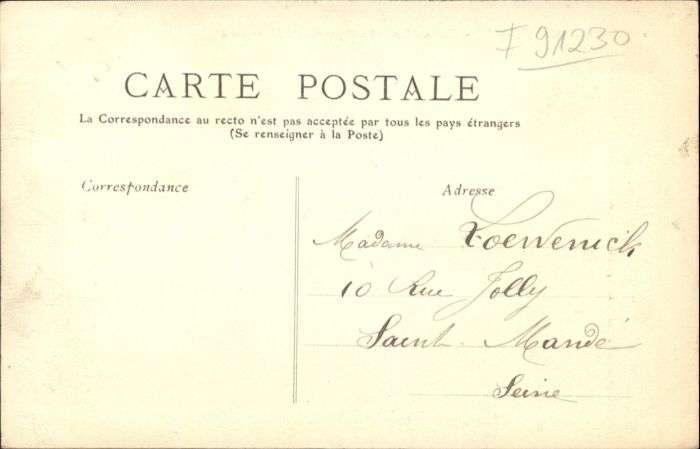 F 91230
CARTE POSTALE
La Correspondance au recto n'est pas acceptée par tous les pays étrangers
(Se renseigner à la Poste)
Correspondance
Adresse
Madame Loewenick
10 Rue Jolly
Saint-Mandé
Seine